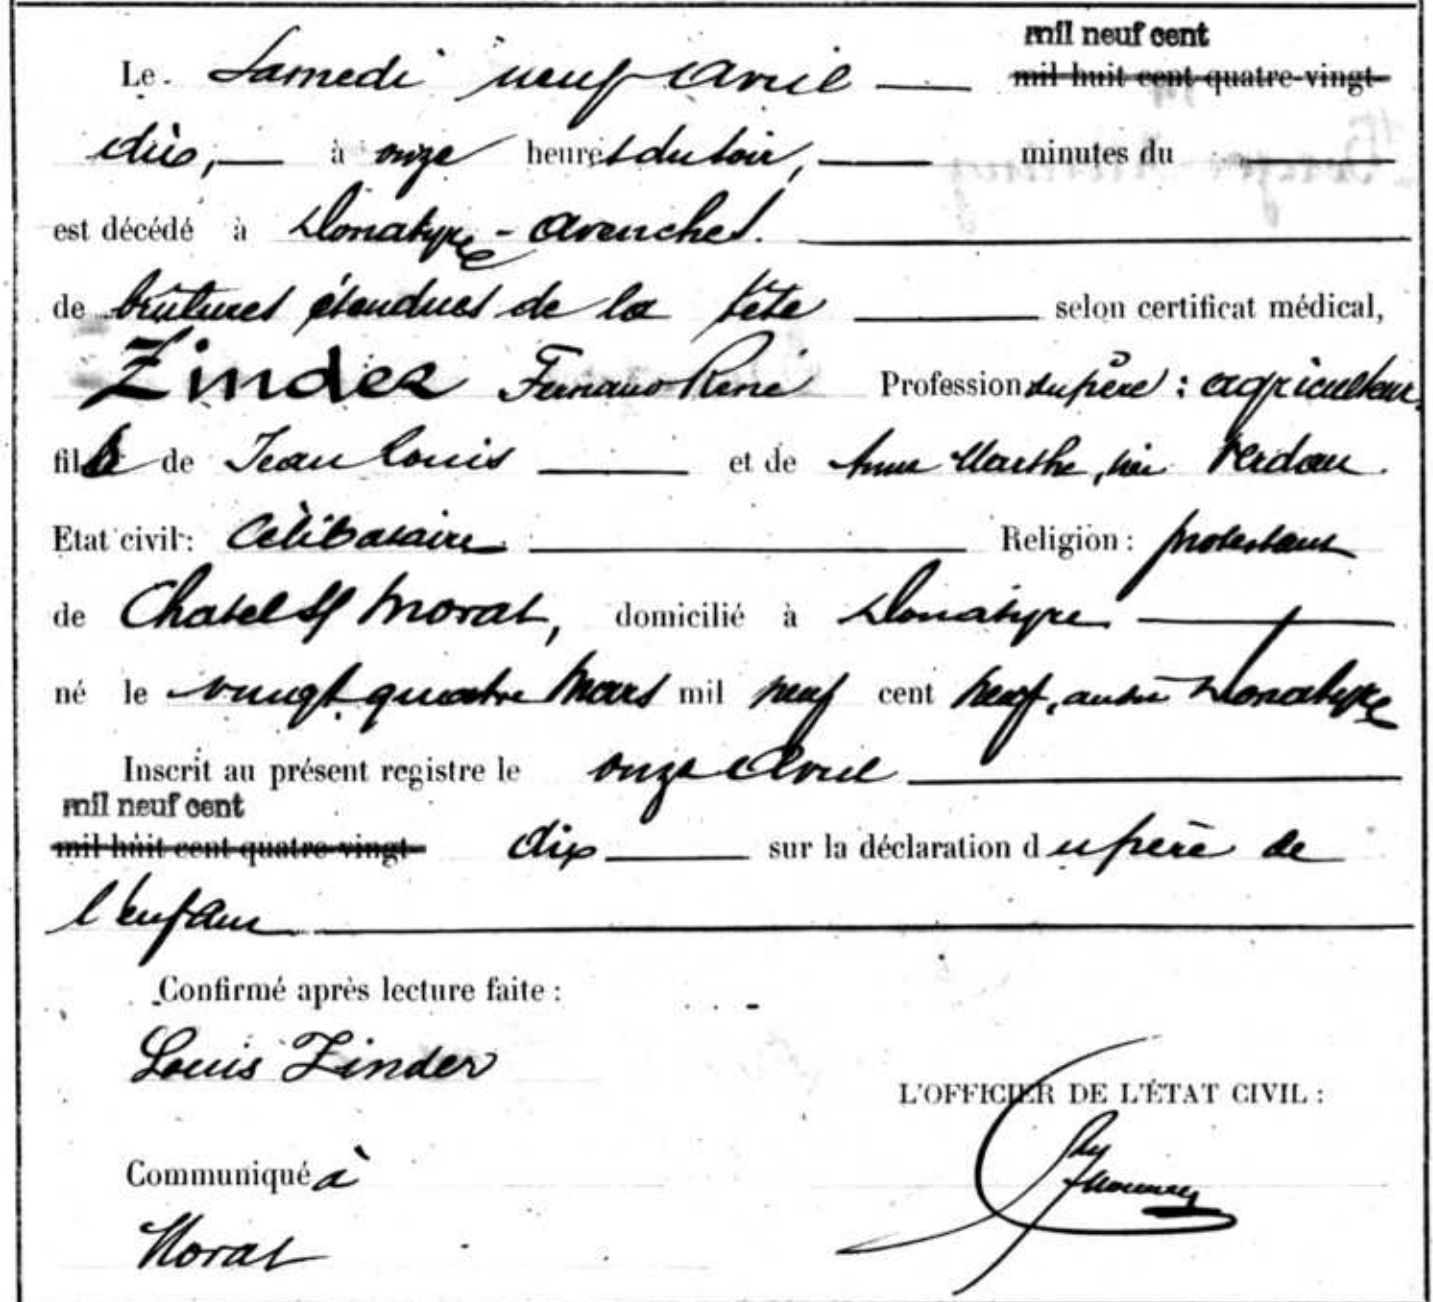 mil neuf cent
Le Samedi neuf avril — mil huit cent quatre-vingt
dix, — à onze heures du soir, — minutes du —
est décédé à Donatyre - Avenches.
de brûlures étendues de la tête — selon certificat médical,
Zinder Fernand René Profession du père : agriculteur.
fils de Jean Louis — et de Anna Marthe, née Verdan.
Etat civil : Célibataire — Religion : protestant
de Chatel s/ Morat, domicilié à Donatyre —
né le vingt quatre Mars mil neuf cent neuf, au dit Donatyre
Inscrit au présent registre le onze Avril —
mil neuf cent
mil huit cent quatre-vingt dix — sur la déclaration du père de
l'enfant —
Confirmé après lecture faite :
Louis Zinder
L'OFFICIER DE L'ÉTAT CIVIL :
Communiqué à
Morat